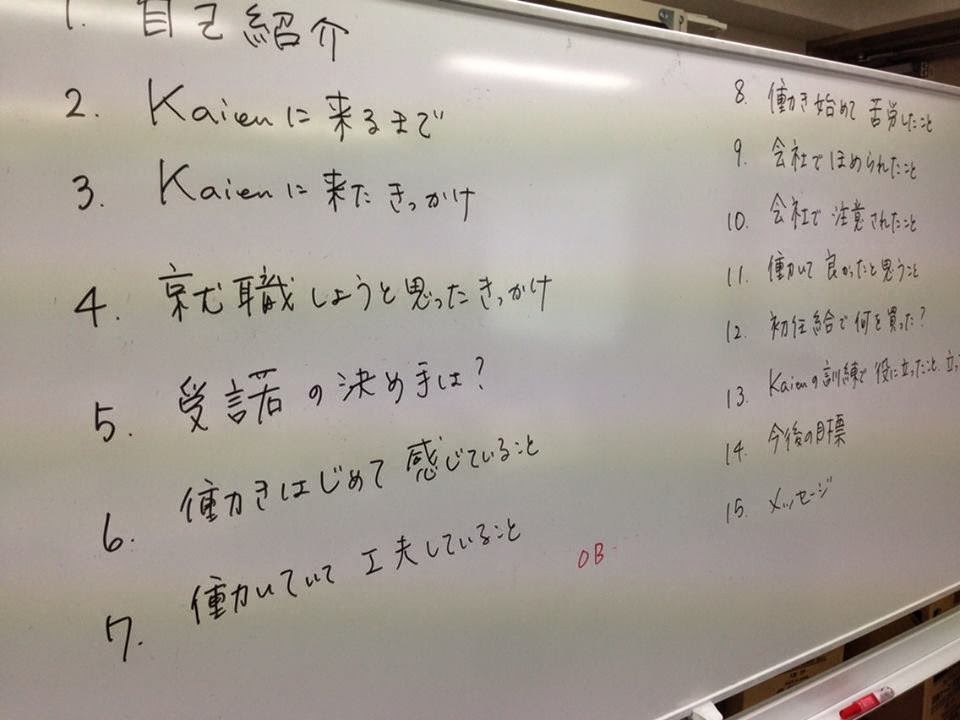 1. 自己紹介
2. Kaienに来るまで
3. Kaienに来たきっかけ
4. 就職しようと思ったきっかけ
5. 受諾の決め手は?
6. 働きはじめて感じていること
7. 働いていて工夫していること
8. 働き始めて苦労したこと
9. 会社でほめられたこと
10. 会社で注意されたこと
11. 働いて良かったと思うこと
12. 初任給で何を買った?
13. Kaienの訓練で役に立ったこと、立っ
14. 今後の目標
15. メッセージ
OB